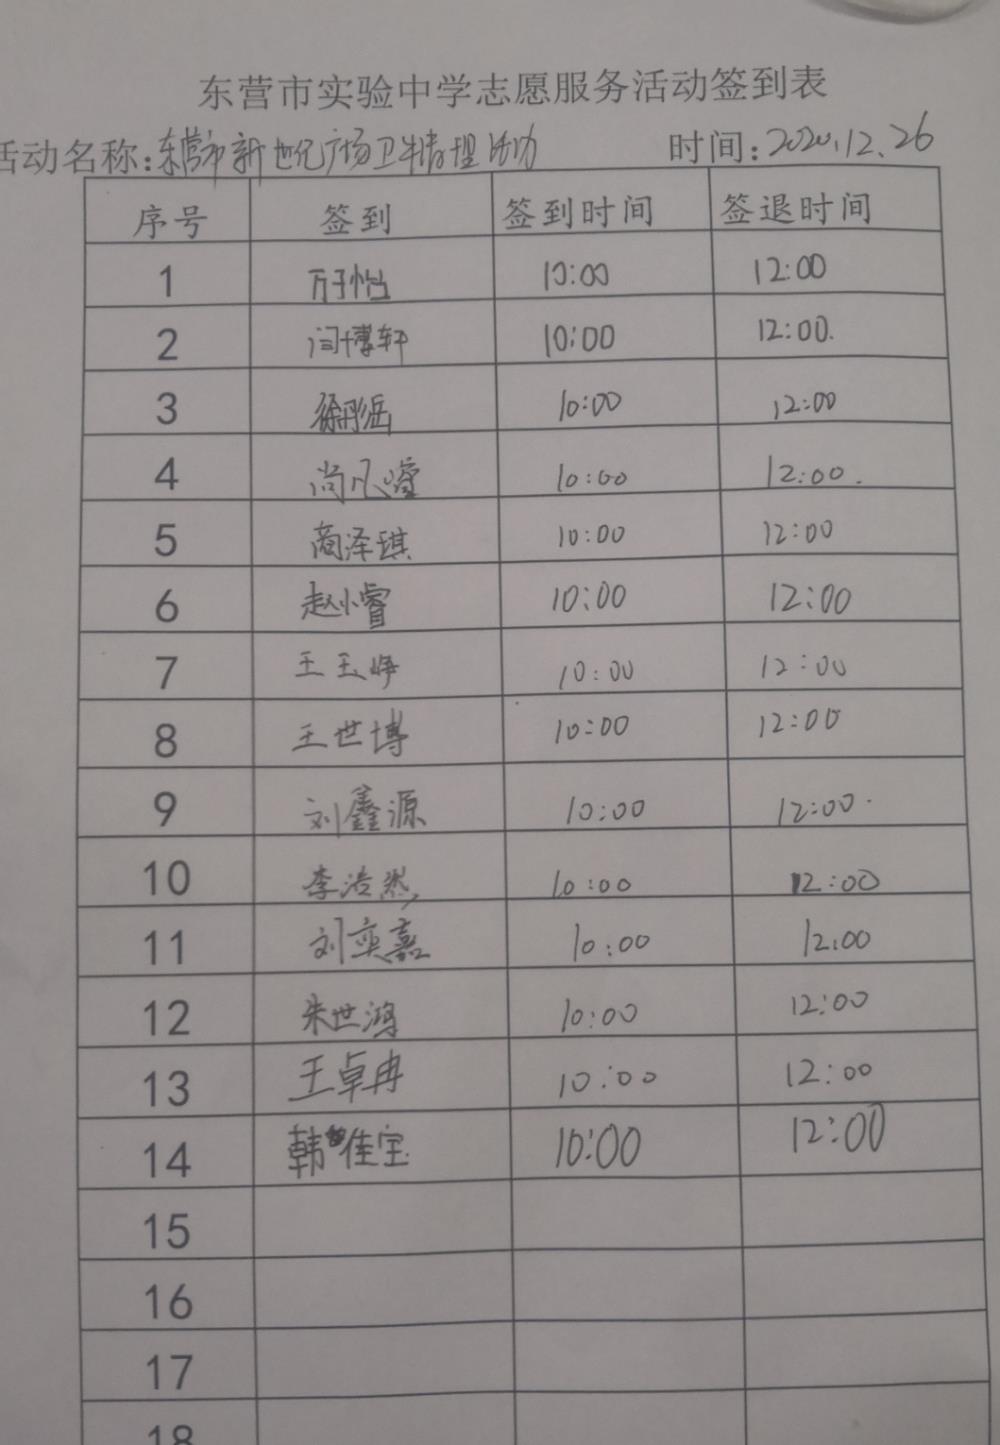 东营市实验中学志愿服务活动签到表
活动名称:东营市新世纪广场卫生清理活动 时间:2020.12.26
序号 签到 签到时间 签退时间
1 万子怡 10:00 12:00
2 闫博轩 10:00 12:00.
3 徐彤岳 10:00 12:00
4 尚凡睿 10:00 12:00.
5 商泽琪 10:00 12:00
6 赵小睿 10:00 12:00
7 王玉峥 10:00 12:00
8 王世博 10:00 12:00
9 刘鑫源 10:00 12:00.
10 李浩然 10:00 12:00
11 刘奕嘉 10:00 12:00
12 朱世鸿 10:00 12:00
13 王卓冉 10:00 12:00
14 韩佳宝 10:00 12:00
15
16
17
18